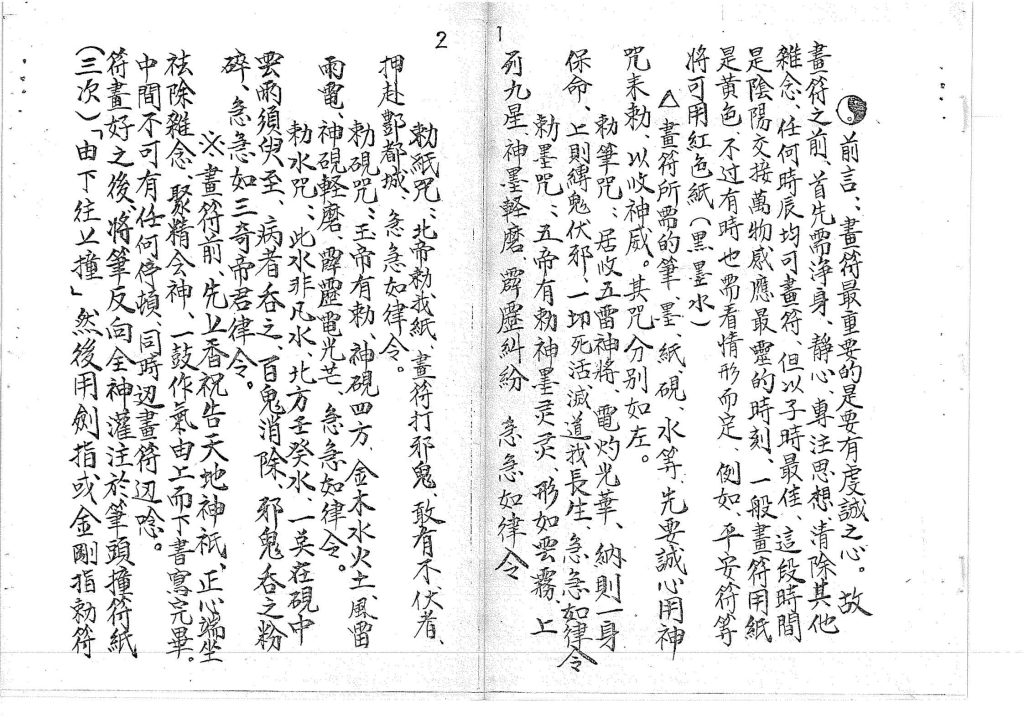 1
☯前言：畫符最重要的是要有虔誠之心。故
畫符之前、首先需净身、静心、專注思想、清除其他
雜念、任何時辰均可畫符、但以子時最佳、這段時間
是陰陽交接萬物感應最靈的時刻、一般畫符用紙
是黄色、不过有時也需看情形而定、例如、平安符等
將可用紅色紙（黑墨水）
△畫符所需的筆、墨、紙、硯、水等、先要誠心用神
咒来勅、以收神威。其咒分别如左。
勅筆咒：居收五雷神將、電灼光華、納則一身
保命、上則縛鬼伏邪、一切死活滅道我長生、急急如律令
勅墨咒：五帝有勅神墨灵灵、形如雲霧、上
列九星、神墨軽磨、霹靂糾紛 急急如律令
2
勅紙咒：北帝勅我紙、畫符打邪鬼、敢有不伏者、
押赴酆都城、急急如律令。
勅硯咒：玉帝有勅、神硯四方、金木水火土、風雷
雨電、神硯軽磨、霹靂電光芒、急急如律令。
勅水咒：此水非凡水、北方壬癸水、一英在硯中
雲雨須臾至、病者呑之、百鬼消除、邪鬼呑之粉
碎、急急如三奇帝君律令。
※畫符前、先上香祝告天地神祇、正心端坐
祛除雜念、聚精会神、一鼓作氣由上而下書寫完畢。
中間不可有任何停頓、同時辺畫符辺唸。
符畫好之後、將筆反向全神灌注於筆頭撞符紙
（三次）「由下往上撞」然後用劍指或金剛指勅符